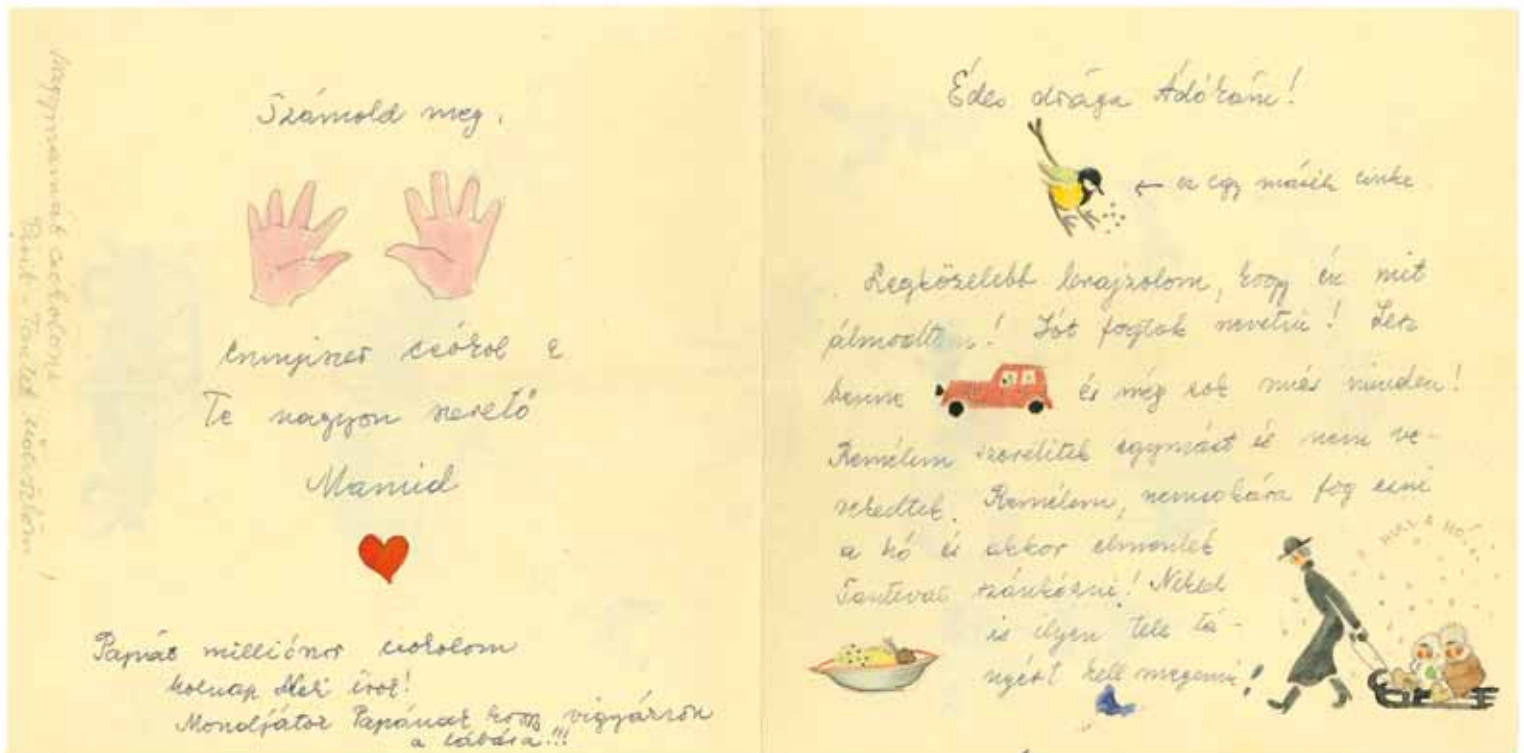 Nagymamát csókolom!
Számold meg.
Ennyiszer csókol a
Te nagyon szerető
Mamid
Papát milliószor csókolom
holnap Neki írok!
Mondjátok Papának hogy vigyázzon
a lábára!!!
Édes drága Ádókám!
← ez egy másik cinke
Legközelebb lerajzolom, hogy én mit
álmodtam! Sót fogtok nevetni! Lesz
benne és még sok más minden!
Remélem szerelitek egymást és nem ve-
szekedtek. Remélem, nemsokára fog esni
a hó és akkor elmentek
Tanteval szánkózni! Neked
is ilyen tele tá-
nyért kell megenni!
HULL A HÓ